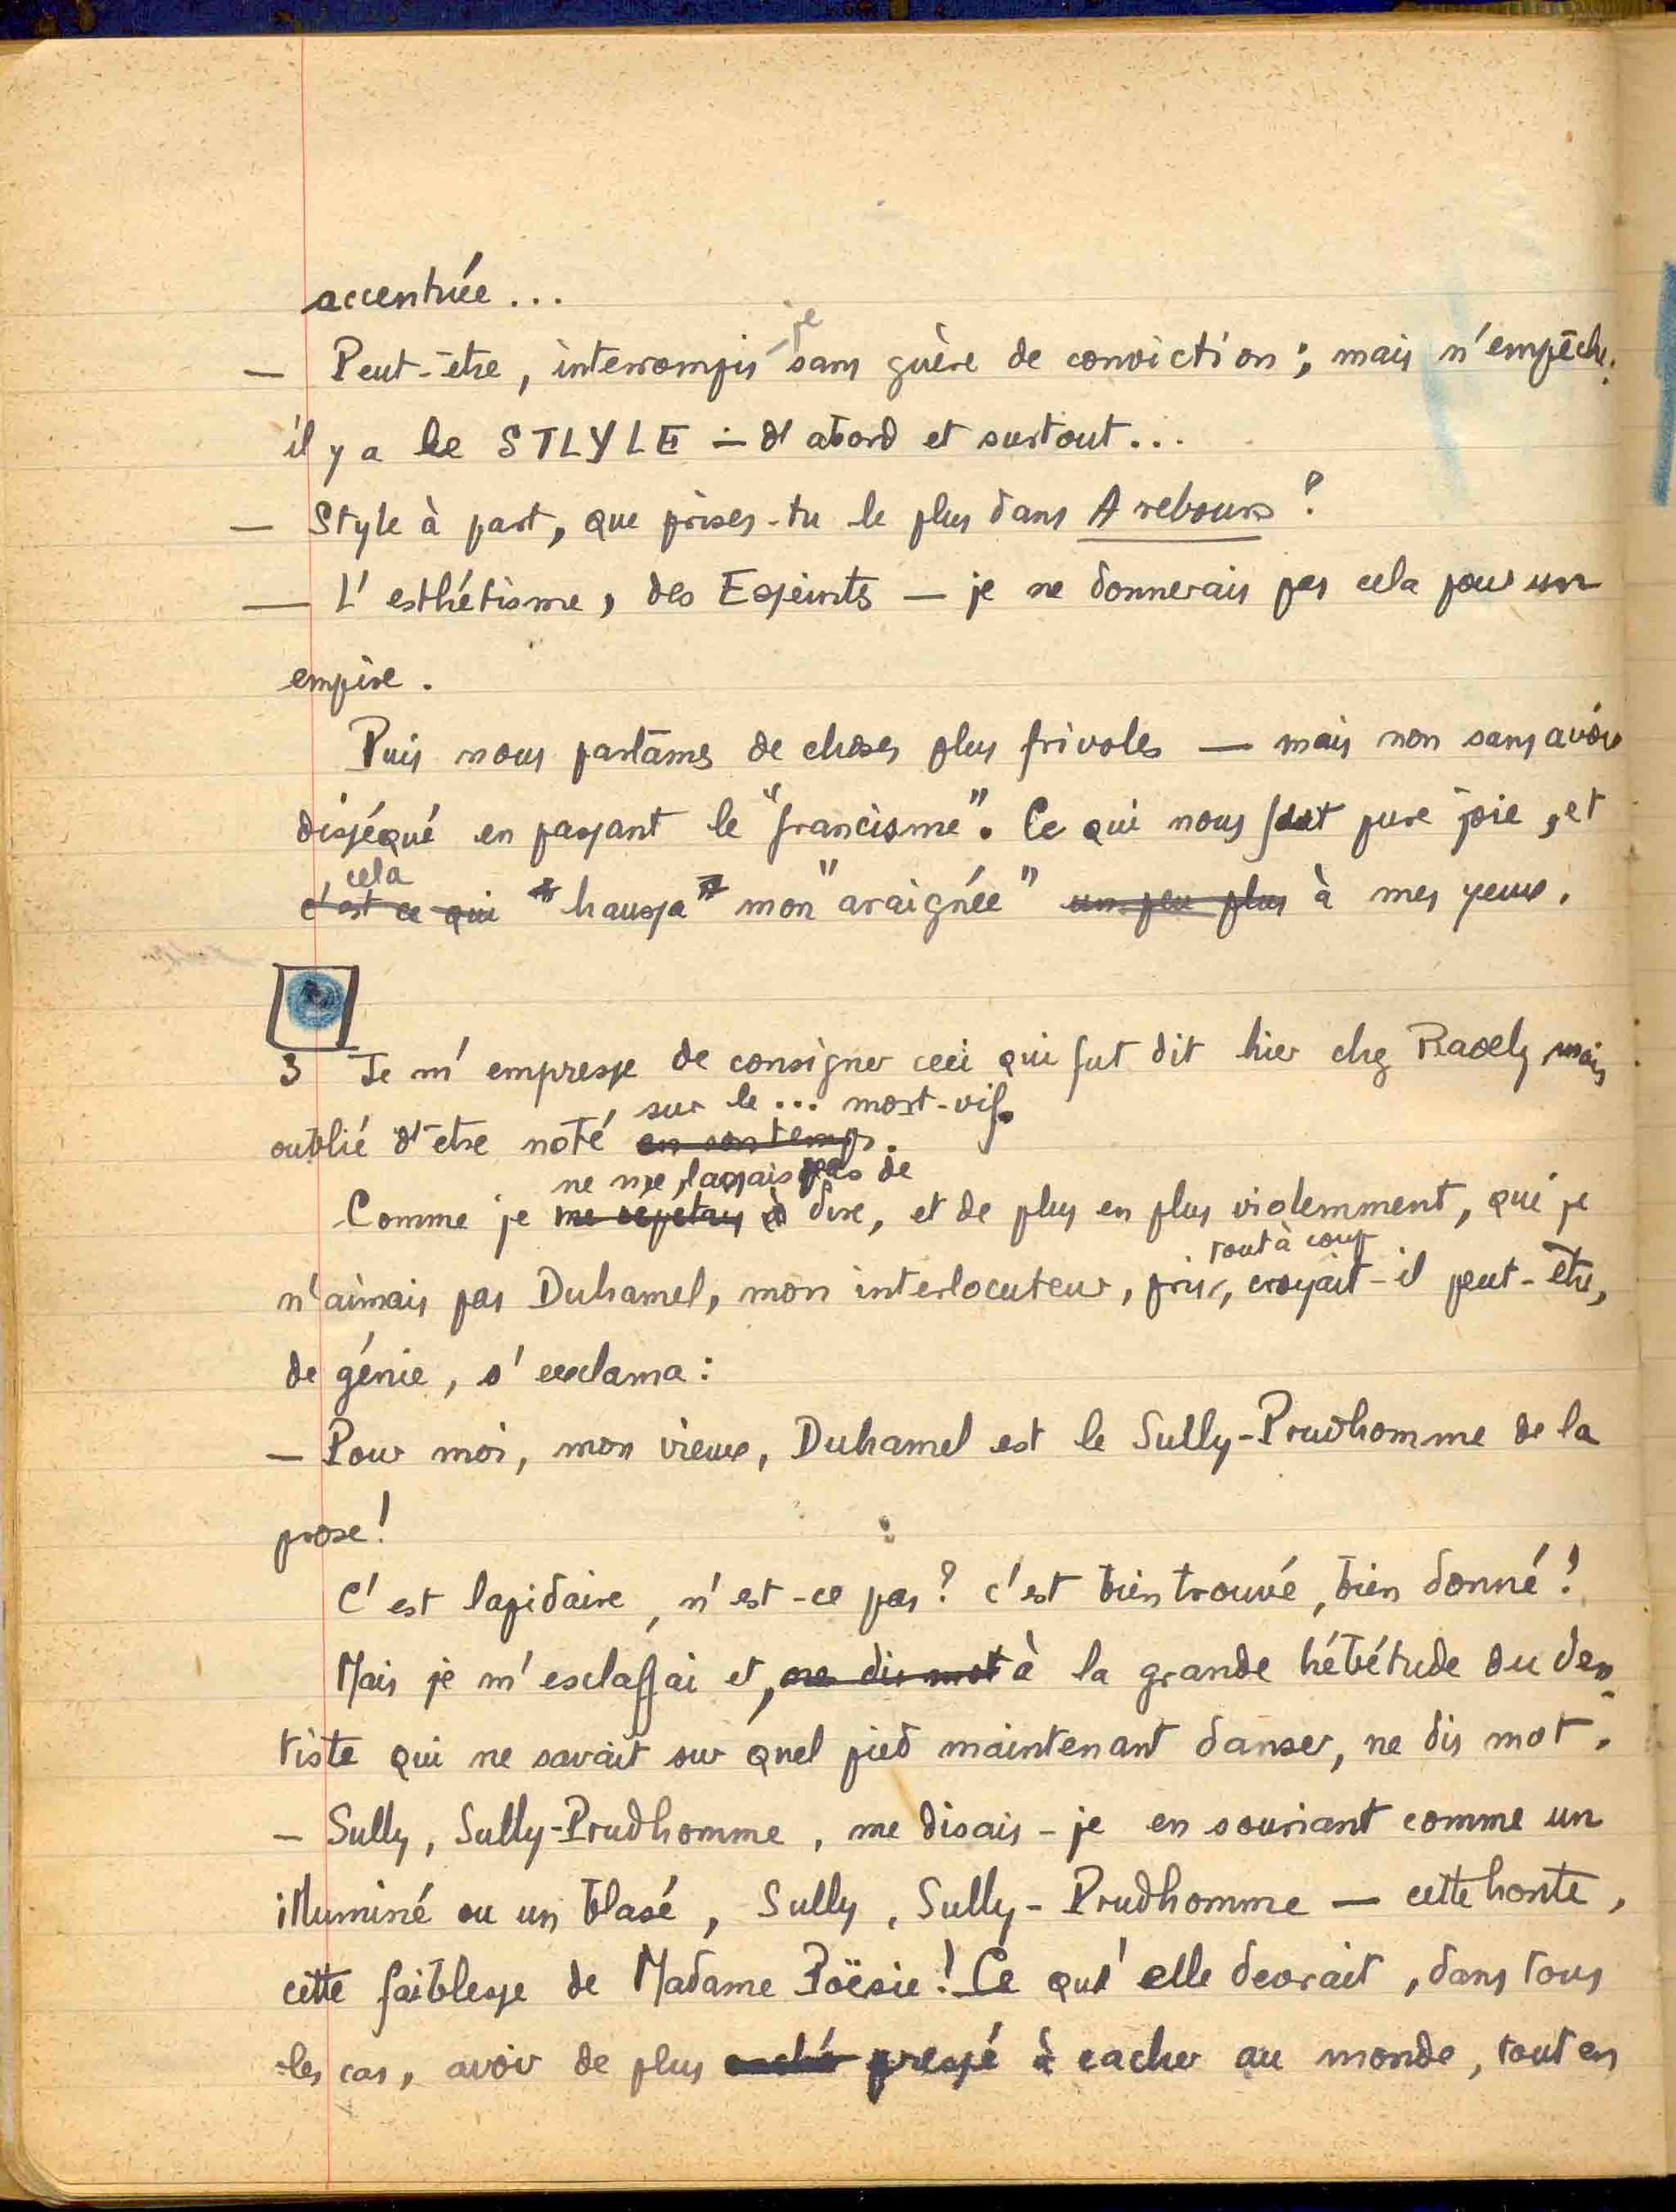 accentuée...
— Peut-être, interrompis-je sans guère de conviction; mais n'empêche:
il y a le STLYLE — d'abord et surtout...
— Style à part, que prises-tu le plus dans A rebours?
— L'esthétisme, des Esseintes — je ne donnerais pas cela pour un
empire.
Puis nous parlâmes de choses plus frivoles — mais non sans avoir
disséqué en passant le "francisme". Ce qui nous fut pure joie, et
cela
c'est ce qui haussa mon "araignée" un peu plus à mes yeux.
3 Je m'empresse de consigner ceci qui fut dit hier chez Raoely mais
sur le... mort-vif.
oublié d'être noté en son temps.
ne me lassais pas de
Comme je me répétais à dire, et de plus en plus violemment, que je
tout à coup
n'aimais pas Duhamel, mon interlocuteur, pris, croyait-il peut-être,
de génie, s'exclama:
— Pour moi, mon vieux, Duhamel est le Sully-Prudhomme de la
prose!
C'est lapidaire, n'est-ce pas? c'est bien trouvé, bien donné!
Mais je m'esclaffai et, ne dis mot à la grande hébétude du den-
tiste qui ne savait sur quel pied maintenant danser, ne dis mot.
— Sully, Sully-Prudhomme, me disais-je en souriant comme un
illuminé ou un blasé, Sully, Sully-Prudhomme — cette honte,
cette faiblesse de Madame Poësie! Ce qu'elle devrait, dans tous
les cas, avoir de plus caché pressé à cacher au monde, tout en